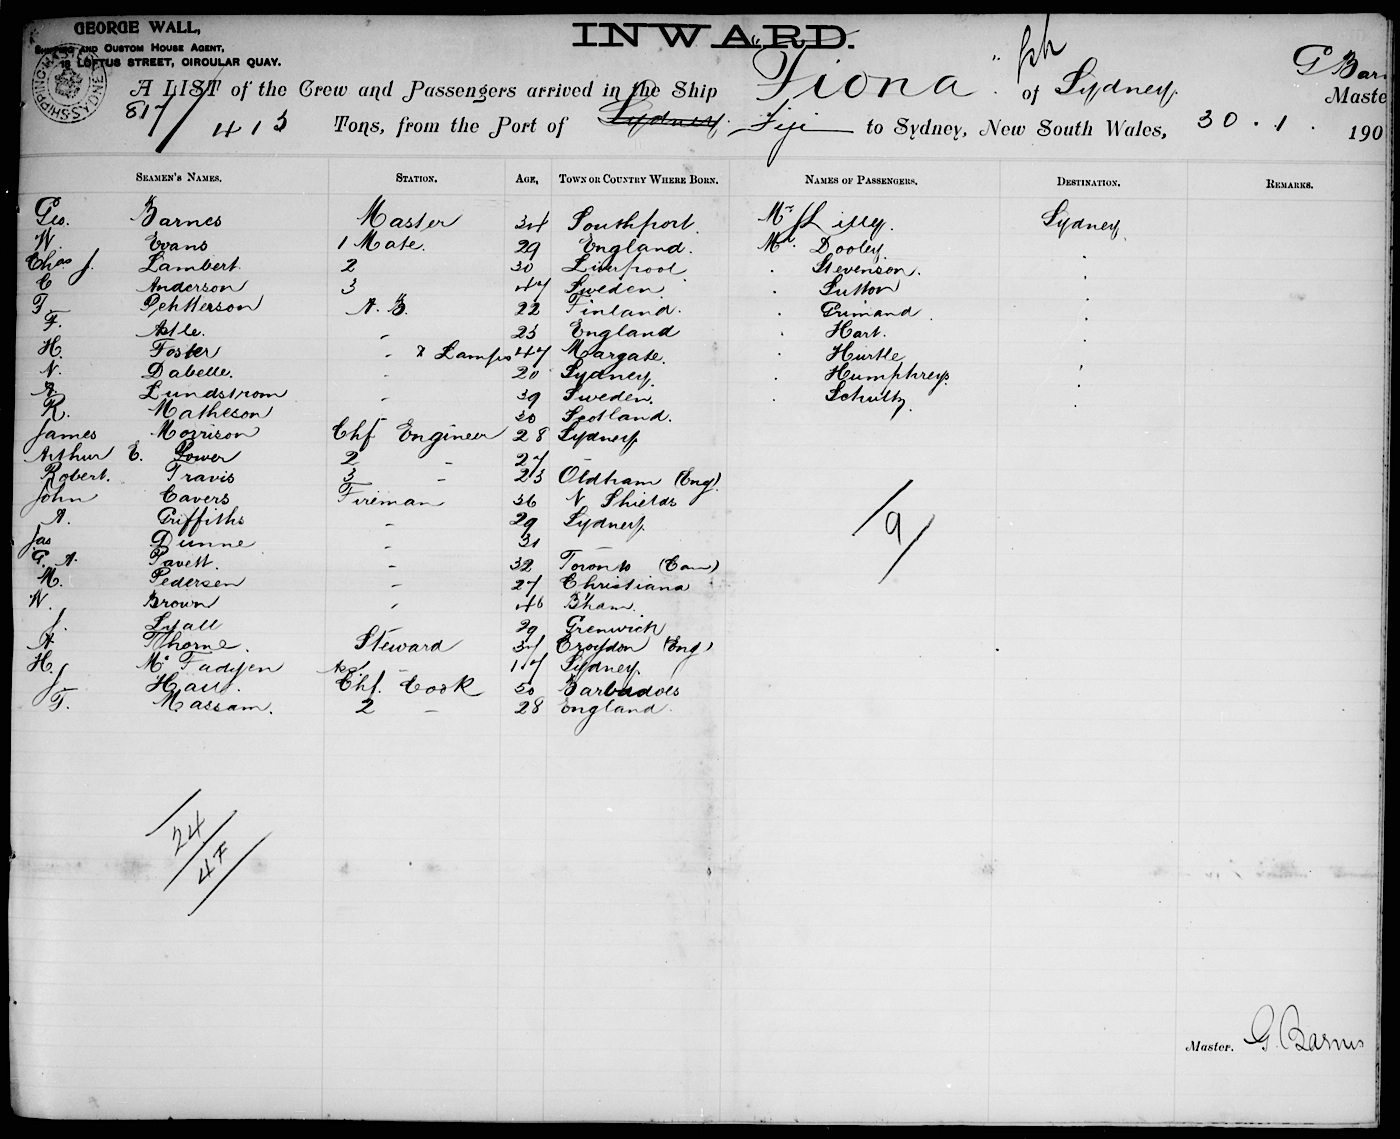 GEORGE WALL,
SHIPPING AND CUSTOM HOUSE AGENT,
18 LOFTUS STREET, CIRCULAR QUAY.
INWARD.
A LIST of the Crew and Passengers arrived in the Ship "Fiona" of Sydney G Bar
Maste
817/413 Tons, from the Port of Sydney Fiji to Sydney, New South Wales, 30.1. 190
SEAMEN'S NAMES. STATION. AGE, TOWN OR COUNTRY WHERE BORN. NAMES OF PASSENGERS. DESTINATION. REMARKS.
Geo. Barnes Master 34 Southport. Mr Lilly. Sydney
W. Evans 1 Mate. 29 England. Mr. Dooley.
Chas J. Lambert 2 30 Liverpool Stevenson.
C Anderson 3 47 Sweden Sutton
F. Pehtterson A.B. 22 Finland. Grimand
F. Astle. " 23 England Hart.
H. Foster " & Lamps 47 Margate. Hurtle
N. Dabelle. " 20 Sydney. Humphreys
A. Lundstrom " 39 Sweden. Schultz
R. Matheson 30 Scotland.
James Morrison Chf Engineer 28 Sydney
Arthur E. Lower 2 " 27 "
Robert. Travis 3 " 23 Oldham (Eng)
John Cavers Fireman 36 N Shields
A. Griffiths " 29 Sydney
Jas Dunne " 31 "
G. A. Pavett. " 32 Toronto (Can)
M. Pedersen " 27 Christiana
W. Brown " 46 B'ham.
J. Lyall 29 Grenwich
A. Thorne. Steward 37 Croydon (Eng)
H. McFadyen Ass 17 Sydney.
J. Chf. Cook 50 Barbadoes
F. Massam. 2 " 28 England.
/9/
/24/
47/
Master. G. Barnes